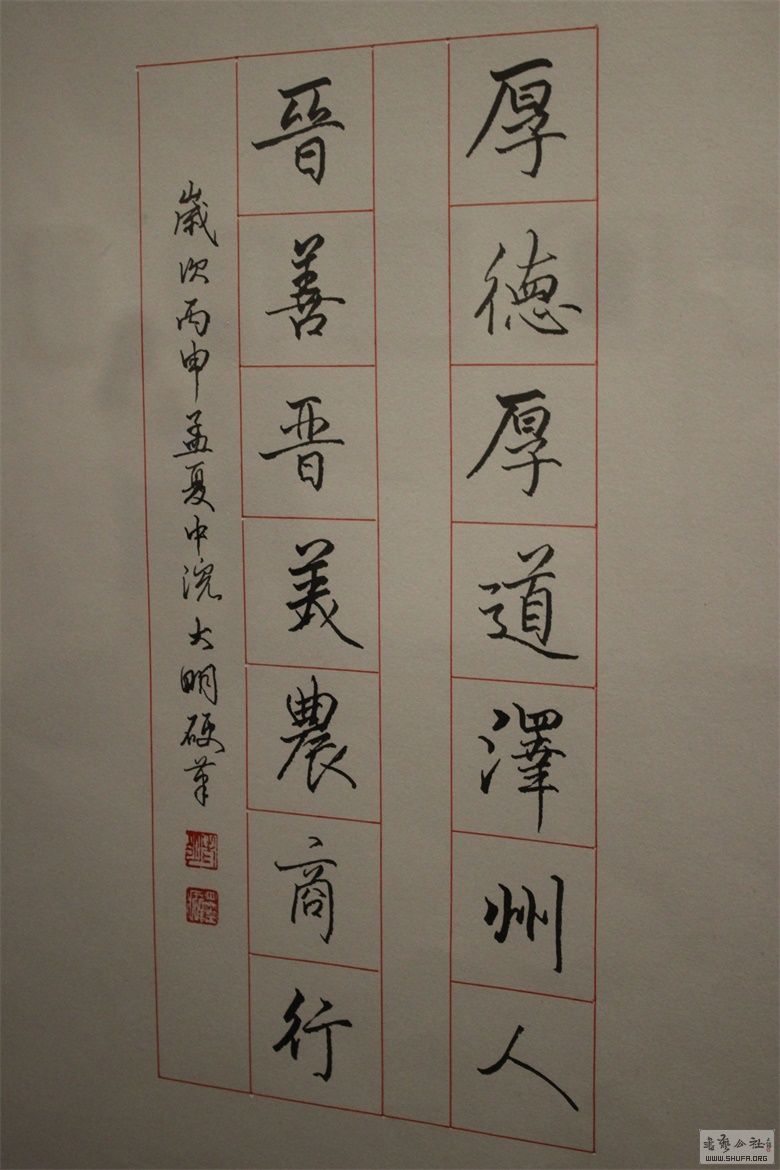 厚德厚道澤州人
晉善晋美農商行
歲次丙申孟夏中浣大明硬筆
书艺公社
WWW.SHUFA.ORG